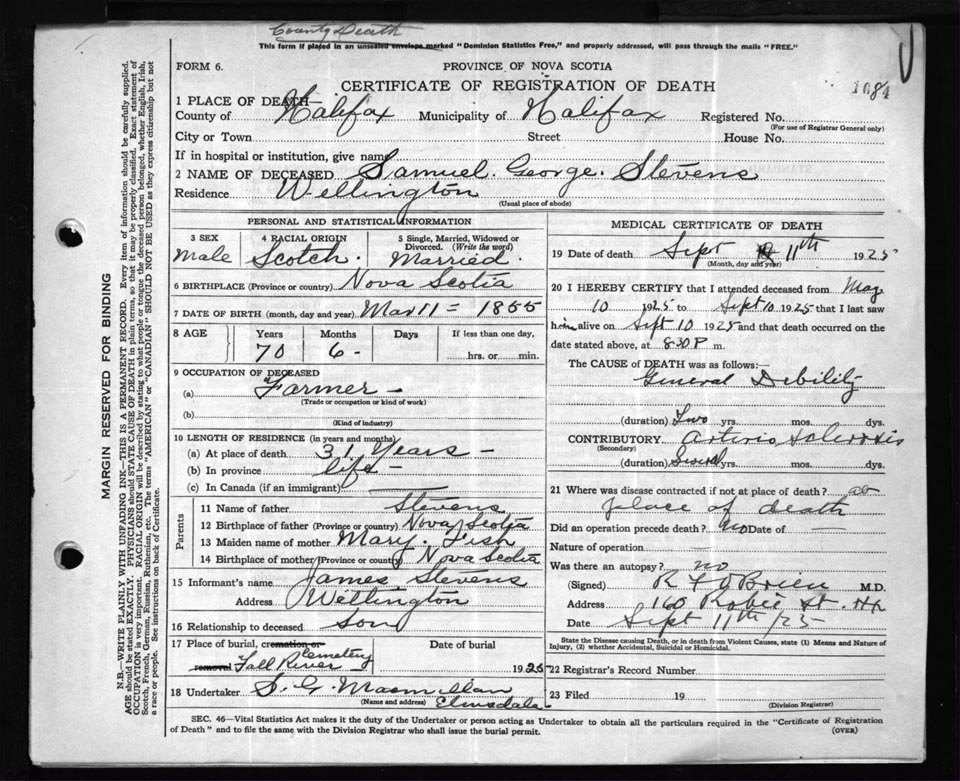 County Death
This form if placed in an unsealed envelope marked "Dominion Statistics Free," and properly addressed, will pass through the mails "FREE."
FORM 6.
PROVINCE OF NOVA SCOTIA
CERTIFICATE OF REGISTRATION OF DEATH
1084
1 PLACE OF DEATH—
County of Halifax Municipality of Halifax Registered No.
(For use of Registrar General only)
City or Town Street House No.
If in hospital or institution, give name
2 NAME OF DECEASED Samuel. George. Stevens
Residence Wellington
(Usual place of abode)
PERSONAL AND STATISTICAL INFORMATION
3 SEX 4 RACIAL ORIGIN 5 Single, Married, Widowed or Divorced. (Write the word)
Male Scotch. Married.
6 BIRTHPLACE (Province or country) Nova Scotia
7 DATE OF BIRTH (month, day and year) Mar 11 = 1855
8 AGE Years Months Days If less than one day,
70 6 - hrs. or min.
9 OCCUPATION OF DECEASED
(a) Farmer —
(Trade or occupation or kind of work)
(b)
(Kind of industry)
10 LENGTH OF RESIDENCE (in years and months)
(a) At place of death 31 Years —
(b) In province life —
(c) In Canada (if an immigrant)
Parents
11 Name of father Stevens
12 Birthplace of father (Province or country) Nova Scotia
13 Maiden name of mother Mary. Fish
14 Birthplace of mother (Province or country) Nova Scotia
15 Informant's name James Stevens
Address Wellington
16 Relationship to deceased Son
17 Place of burial, cremation or removal Date of burial
Fall River Cemetery 1925
18 Undertaker S. G. Macmillan
(Name and address) Elmsdale
MEDICAL CERTIFICATE OF DEATH
19 Date of death Sept 11th 1925
(Month, day and year)
20 I HEREBY CERTIFY that I attended deceased from May
10 1925 to Sept 10 1925 that I last saw
him alive on Sept 10 1925 and that death occurred on the
date stated above, at 8:30 P m.
The CAUSE of DEATH was as follows:—
General Debility
(duration) Two yrs. mos. dys.
CONTRIBUTORY Arterio Sclerosis
(Secondary)
(duration) Several yrs. mos. dys.
21 Where was disease contracted if not at place of death? at
place of death
Did an operation precede death? no Date of —
Nature of operation
Was there an autopsy? no
(Signed) R F O'Brien M.D.
Address 160 Robie St. Hx
Date Sept 11th /25
State the Disease causing Death, or in death from Violent Causes, state (1) Means and Nature of
Injury, (2) whether Accidental, Suicidal or Homicidal.
22 Registrar's Record Number
23 Filed 19
(Division Registrar)
SEC. 46—Vital Statistics Act makes it the duty of the Undertaker or person acting as Undertaker to obtain all the particulars required in the "Certificate of Registration
of Death" and to file the same with the Division Registrar who shall issue the burial permit. (OVER)
MARGIN RESERVED FOR BINDING
N.B.—WRITE PLAINLY WITH UNFADING INK—THIS IS A PERMANENT RECORD. Every item of information should be carefully supplied.
AGE should be stated EXACTLY. PHYSICIANS should STATE CAUSE OF DEATH in plain terms, so that it may be properly classified. Exact statement of
OCCUPATION is very important. RACIAL ORIGIN will be described by stating to what people or tongue the deceased person belonged, whether English, Irish,
Scotch, French, German, Russian, Ruthenian, etc. The terms "AMERICAN" or "CANADIAN" SHOULD NOT BE USED as they express citizenship but not
a race or people. See instructions on back of Certificate.